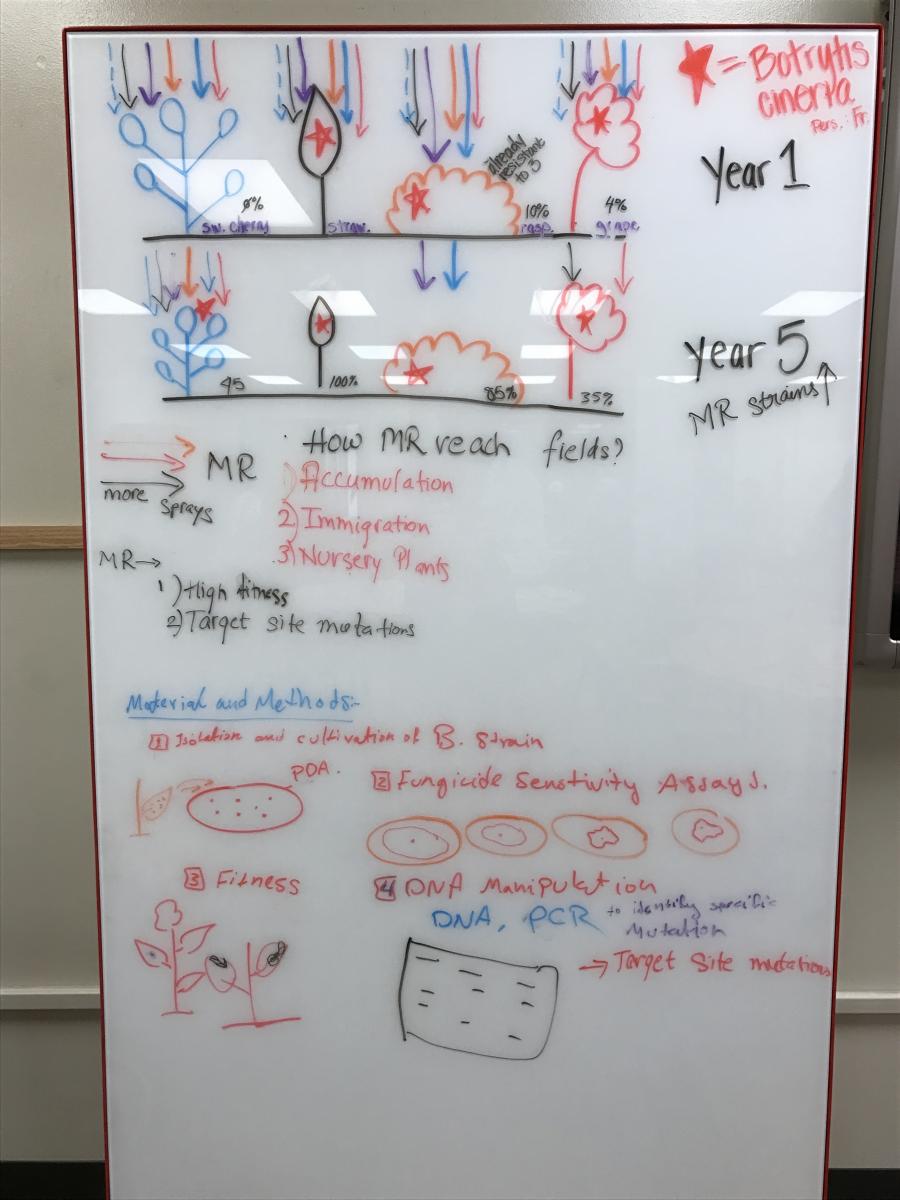 = Botrytis
cinerea
Pers.: Fr.
already
resistant
to 3
Year 1
0%
10%
4%
sw. cherry
straw.
rasp.
grape
Year 5
MR strains ↑
45
100%
85%
35%
How MR reach fields?
MR
more sprays
1) Accumulation
2) Immigration
3) Nursery Plants
MR →
1) High fitness
2) Target site mutations
Material and Methods:-
1 Isolation and cultivation of B. Strain
PDA.
2 Fungicide Senstivity Assays.
3 Fitness
4 DNA Manipulation
DNA, PCR to identify specific
Mutation
→ Target Site mutations